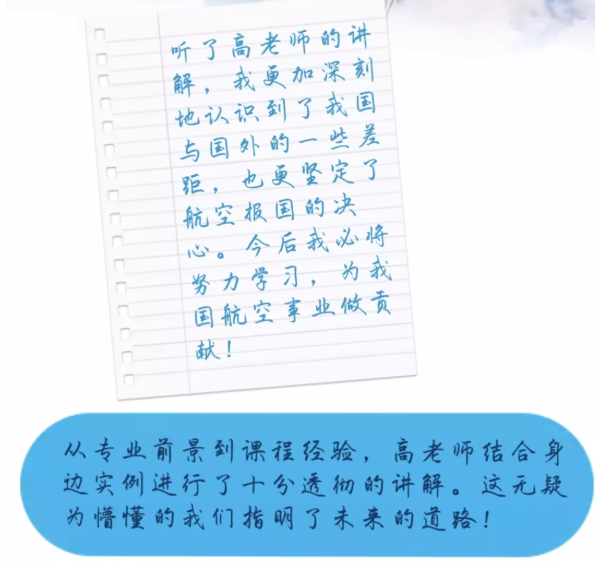 听了高老师的讲
解，我更加深刻
地认识到了我国
与国外的一些差
距，也更坚定了
航空报国的决
心。今后我必将
努力学习，为我
国航空事业做贡
献！
从专业前景到课程经验，高老师结合身
边实例进行了十分透彻的讲解。这无疑
为懵懂的我们指明了未来的道路！